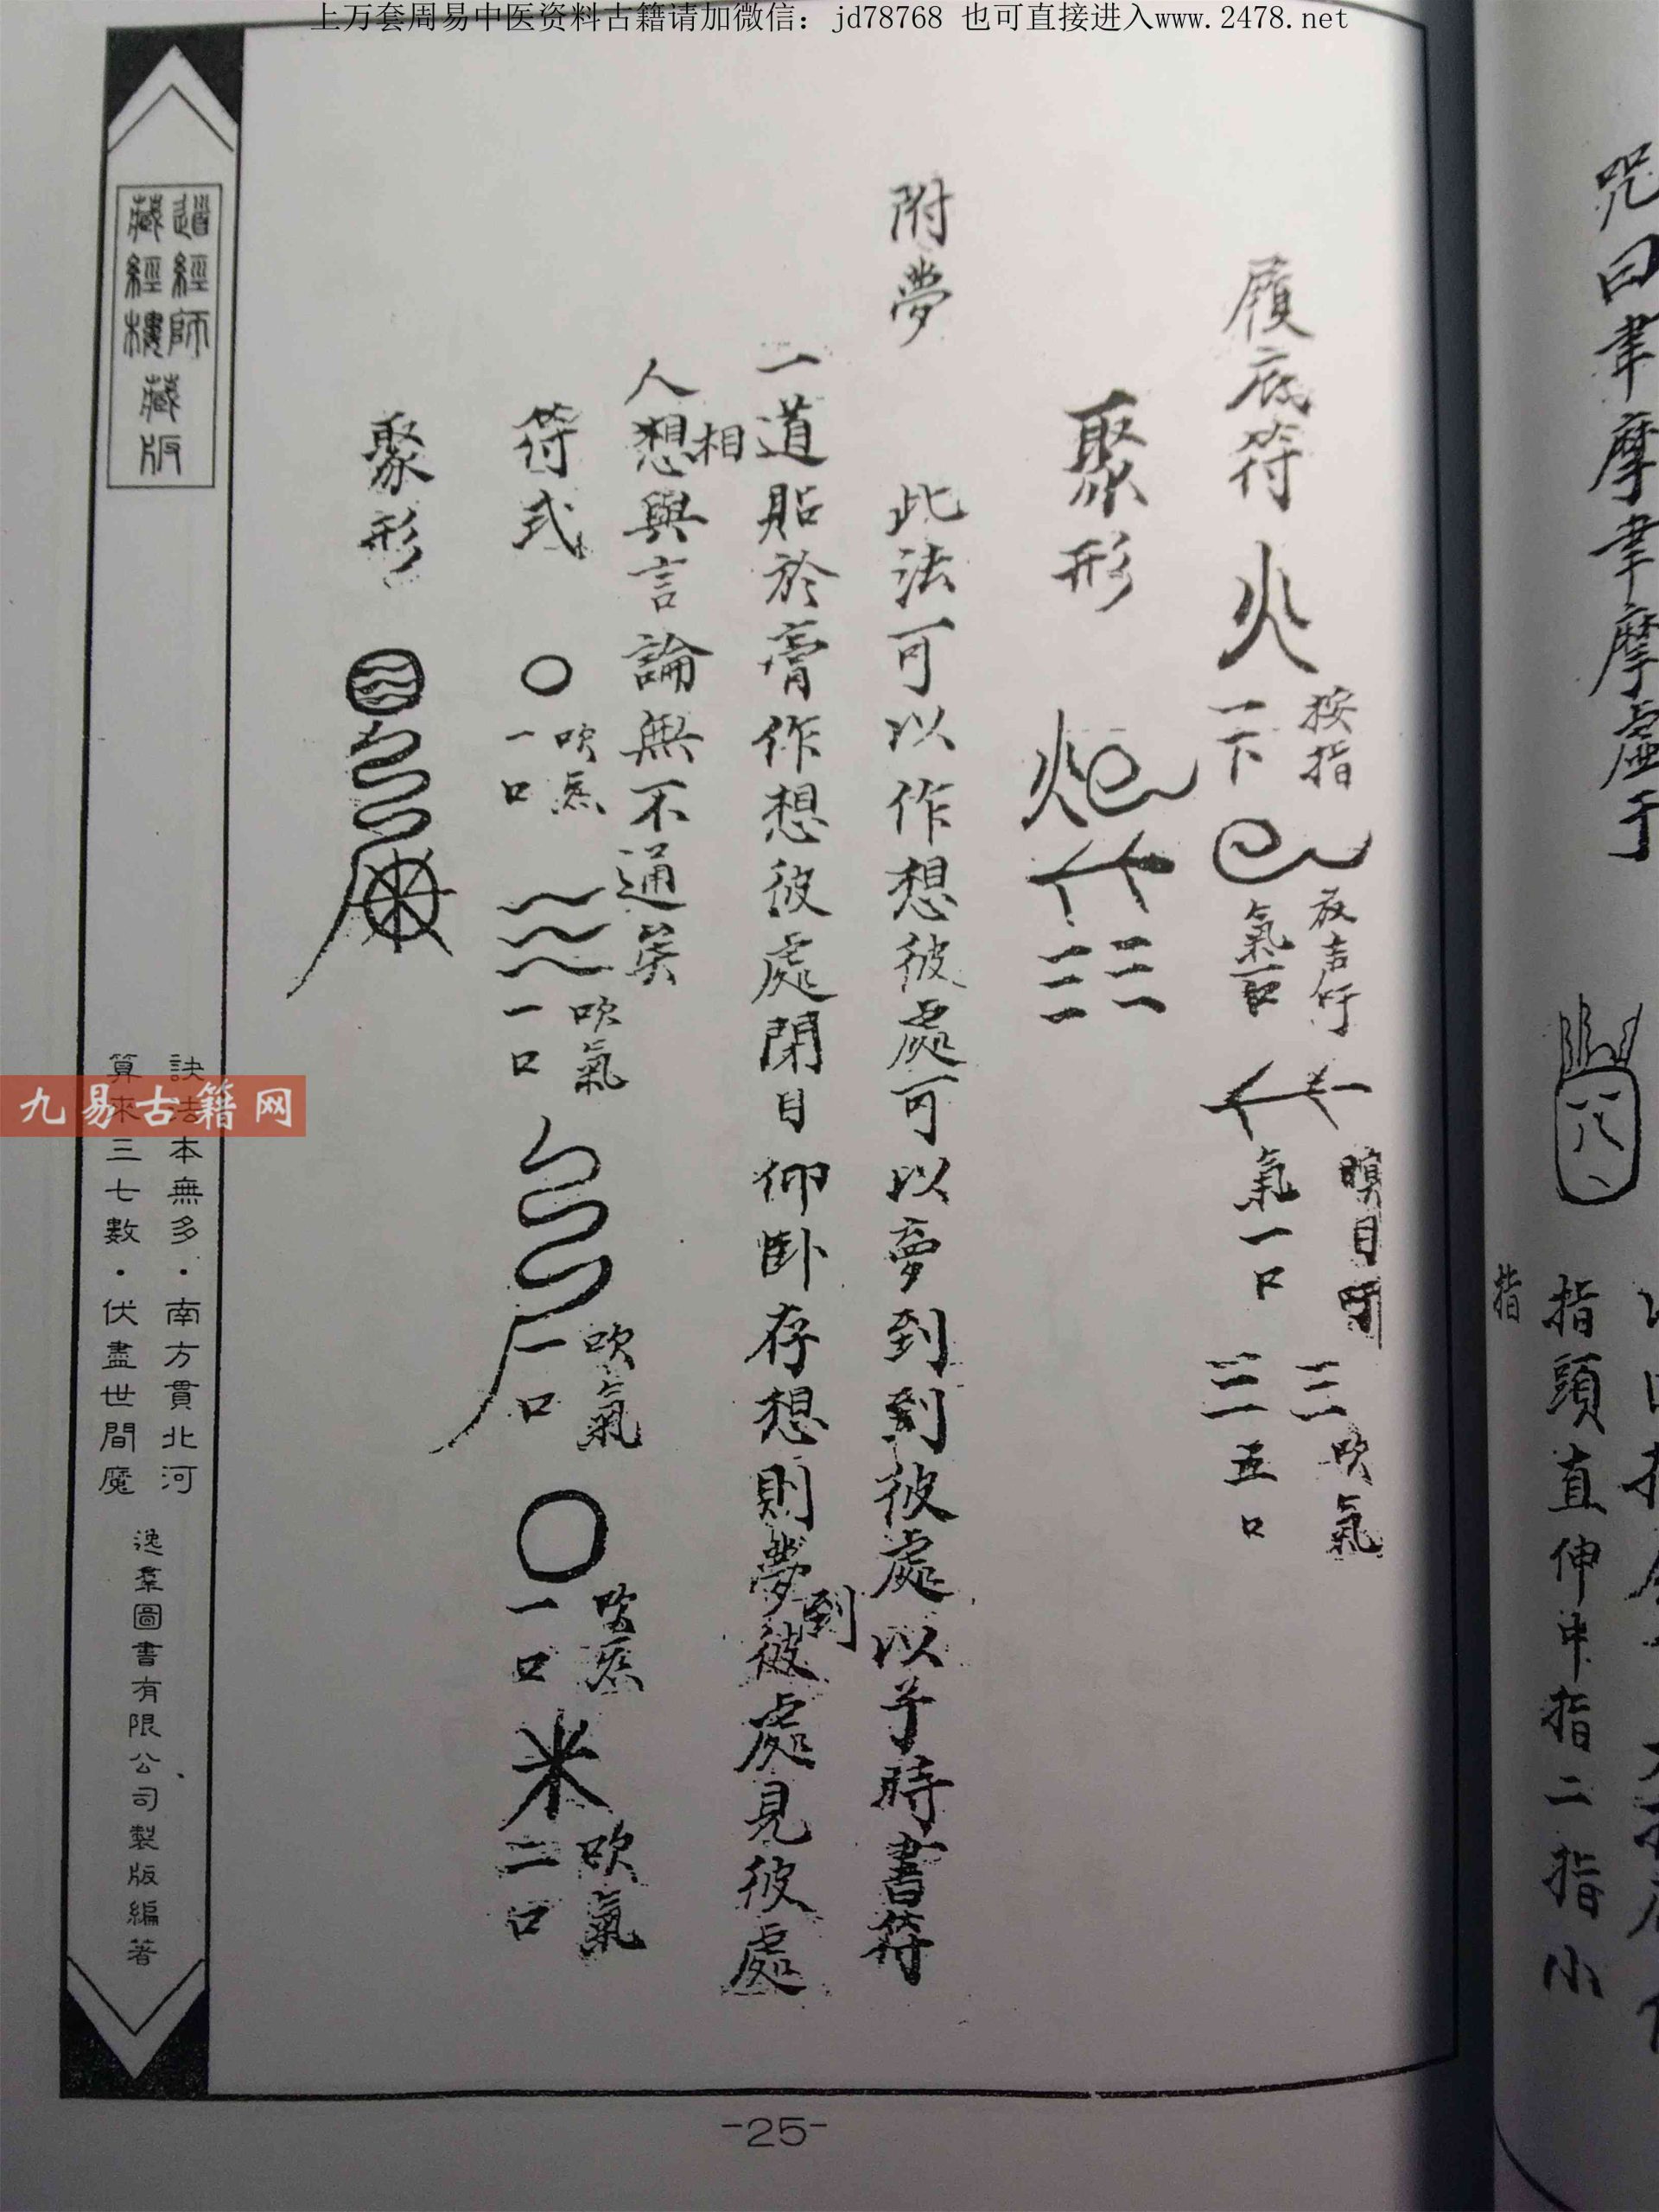 上万套周易中医资料古籍请加微信：jd78768 也可直接进入www.2478.net
咒曰韋摩韋摩
指頭直伸中指二指小
指
履底符 火 按指一下 氣一口 瞑目 氣一口 吹氣五口
聚形
附夢 此法可以作想彼處可以夢到到彼處以子時書符
一道貼於膏作想彼處閉目仰卧存想則夢到彼處見彼處
人想相與言論無不通矣
符式 吹炁一口 吹氣一口 吹氣一口 吹炁一口 米 吹氣二口
聚形
道經師藏經樓藏版
訣法本無多·南方貫北河
算來三七數·伏盡世間魔
逸羣圖書有限公司製版編著
九易古籍网
-25-